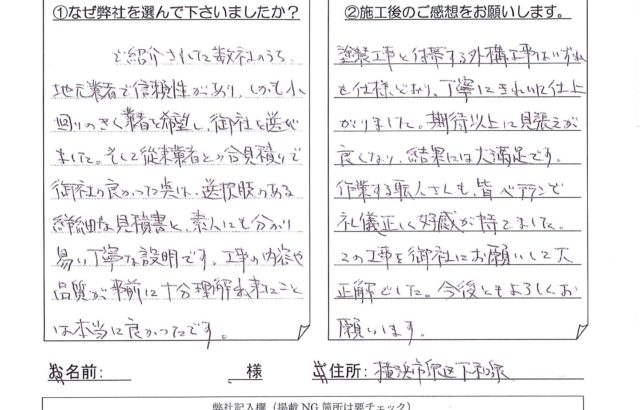 ①なぜ弊社を選んで下さいましたか？
ご紹介された数社のうち、
地元業者で信頼性があり、しかも小
回りのきく業者を希望し、御社を選び
ました。そして従来業者との合見積りで
御社の良かった点は、選択肢のある
詳細な見積書と、素人にも分かり
易い丁寧な説明です。工事の内容や
品質が事前に十分理解出来たこと
は本当に良かったです。
②施工後のご感想をお願いします。
塗装工事と付帯する外構工事はいずれ
も仕様どおり、丁寧にきれいに仕上
がりました。期待以上に見栄えが
良くなり、結果には大満足です。
作業する職人さんも、皆ベテランで
礼儀正しく好感が持てました。
この工事を御社にお願いして大
正解でした。今後ともよろしくお
願いします。
お名前: 様
住所: 横浜市泉区下和泉
弊社記入欄（掲載 NG 箇所は要チェック）